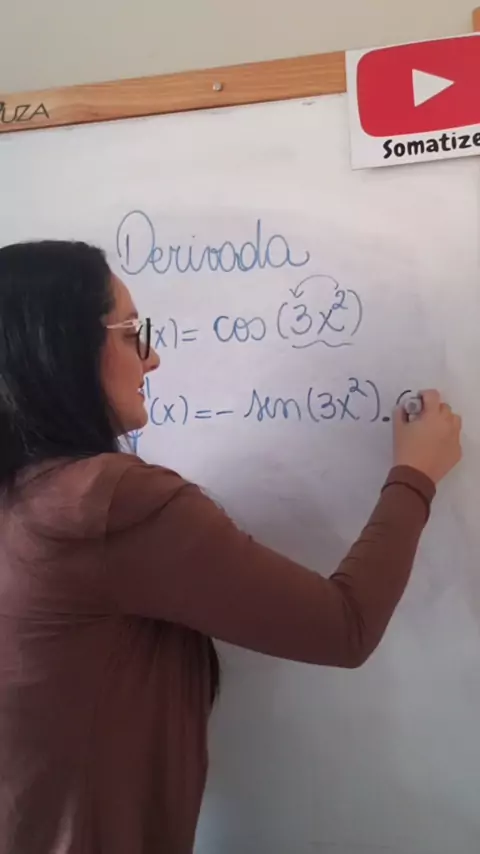 UZA
Somatize
Derivada
(x) = cos (3x²)
'(x) = - sen (3x²) . (